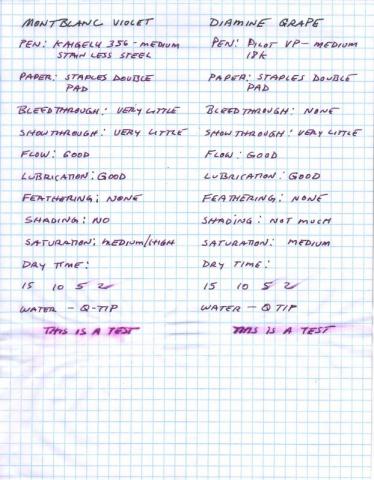 MONTBLANC VIOLET
PEN: KAIGELU 356 - MEDIUM
STAINLESS STEEL
PAPER: STAPLES DOUBLE
PAD
BLEEDTHROUGH: VERY LITTLE
SHOWTHROUGH: VERY LITTLE
FLOW: GOOD
LUBRICATION: GOOD
FEATHERING: NONE
SHADING: NO
SATURATION: MEDIUM/HIGH
DRY TIME:
15 10 5 2
WATER - Q-TIP
THIS IS A TEST
DIAMINE GRAPE
PEN: PILOT VP - MEDIUM
18K
PAPER: STAPLES DOUBLE
PAD
BLEEDTHROUGH: NONE
SHOWTHROUGH: VERY LITTLE
FLOW: GOOD
LUBRICATION: GOOD
FEATHERING: NONE
SHADING: NOT MUCH
SATURATION: MEDIUM
DRY TIME:
15 10 5 2
WATER - Q TIP
THIS IS A TEST